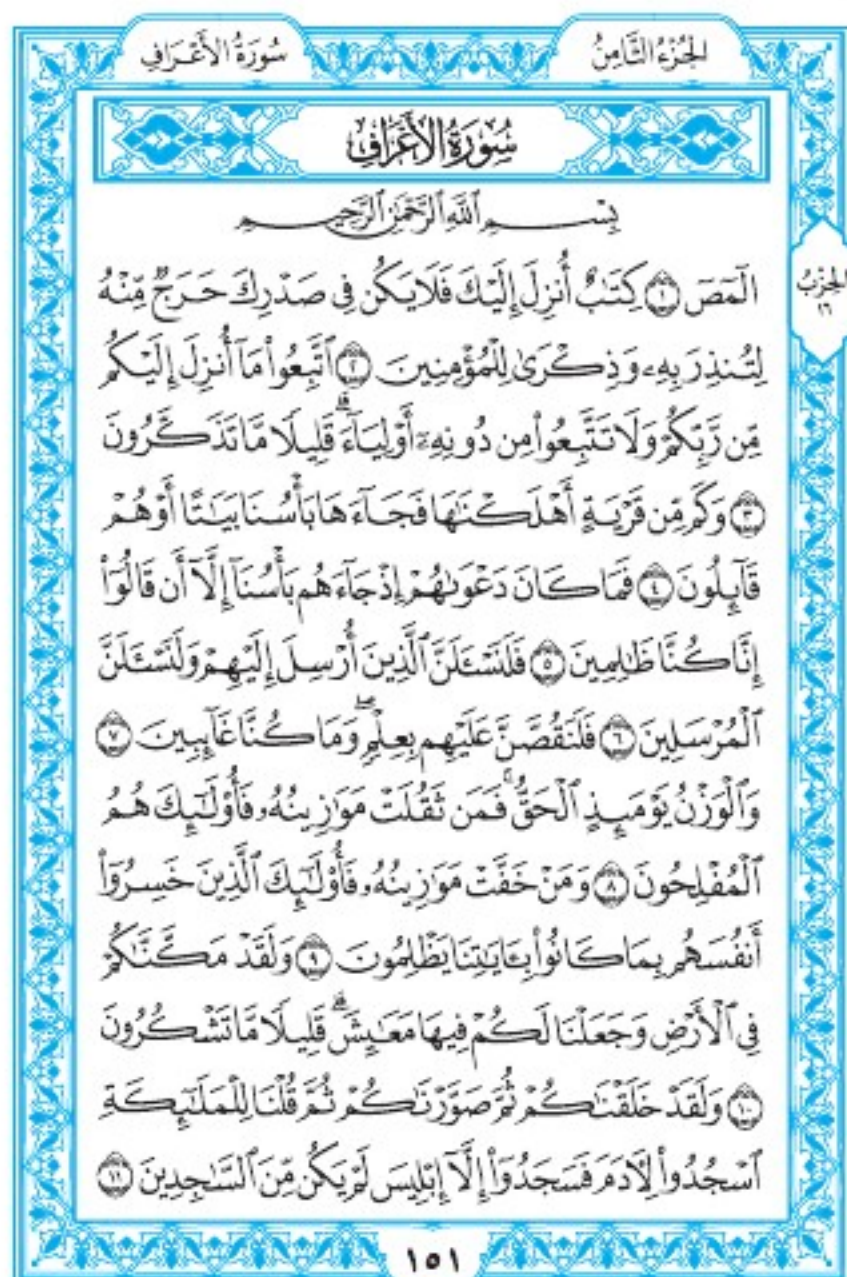 الجُزْءُ الثَّامِنُ
سُورَةُ الأَعْرَافِ
سُورَةُ الأَعْرَافِ
بِسْمِ ٱللَّهِ ٱلرَّحْمَٰنِ ٱلرَّحِيمِ
الجِزْبُ
١٦
الٓمٓصٓ ١ كِتَٰبٌ أُنزِلَ إِلَيْكَ فَلَا يَكُن فِى صَدْرِكَ حَرَجٌ مِّنْهُ
لِتُنذِرَ بِهِۦ وَذِكْرَىٰ لِلْمُؤْمِنِينَ ٢ ٱتَّبِعُوا۟ مَآ أُنزِلَ إِلَيْكُم
مِّن رَّبِّكُمْ وَلَا تَتَّبِعُوا۟ مِن دُونِهِۦٓ أَوْلِيَآءَ ۗ قَلِيلًا مَّا تَذَكَّرُونَ
٣ وَكَم مِّن قَرْيَةٍ أَهْلَكْنَٰهَا فَجَآءَهَا بَأْسُنَا بَيَٰتًا أَوْ هُمْ
قَآئِلُونَ ٤ فَمَا كَانَ دَعْوَىٰهُمْ إِذْ جَآءَهُم بَأْسُنَآ إِلَّآ أَن قَالُوٓا۟
إِنَّا كُنَّا ظَٰلِمِينَ ٥ فَلَنَسْـَٔلَنَّ ٱلَّذِينَ أُرْسِلَ إِلَيْهِمْ وَلَنَسْـَٔلَنَّ
ٱلْمُرْسَلِينَ ٦ فَلَنَقُصَّنَّ عَلَيْهِم بِعِلْمٍ ۖ وَمَا كُنَّا غَآئِبِينَ ٧
وَٱلْوَزْنُ يَوْمَئِذٍ ٱلْحَقُّ ۚ فَمَن ثَقُلَتْ مَوَٰزِينُهُۥ فَأُو۟لَٰٓئِكَ هُمُ
ٱلْمُفْلِحُونَ ٨ وَمَنْ خَفَّتْ مَوَٰزِينُهُۥ فَأُو۟لَٰٓئِكَ ٱلَّذِينَ خَسِرُوٓا۟
أَنفُسَهُم بِمَا كَانُوا۟ بِـَٔايَٰتِنَا يَظْلِمُونَ ٩ وَلَقَدْ مَكَّنَّٰكُمْ
فِى ٱلْأَرْضِ وَجَعَلْنَا لَكُمْ فِيهَا مَعَٰيِشَ ۗ قَلِيلًا مَّا تَشْكُرُونَ
١٠ وَلَقَدْ خَلَقْنَٰكُمْ ثُمَّ صَوَّرْنَٰكُمْ ثُمَّ قُلْنَا لِلْمَلَٰٓئِكَةِ
ٱسْجُدُوا۟ لِـَٔادَمَ فَسَجَدُوٓا۟ إِلَّآ إِبْلِيسَ لَمْ يَكُن مِّنَ ٱلسَّٰجِدِينَ ١١
١٥١